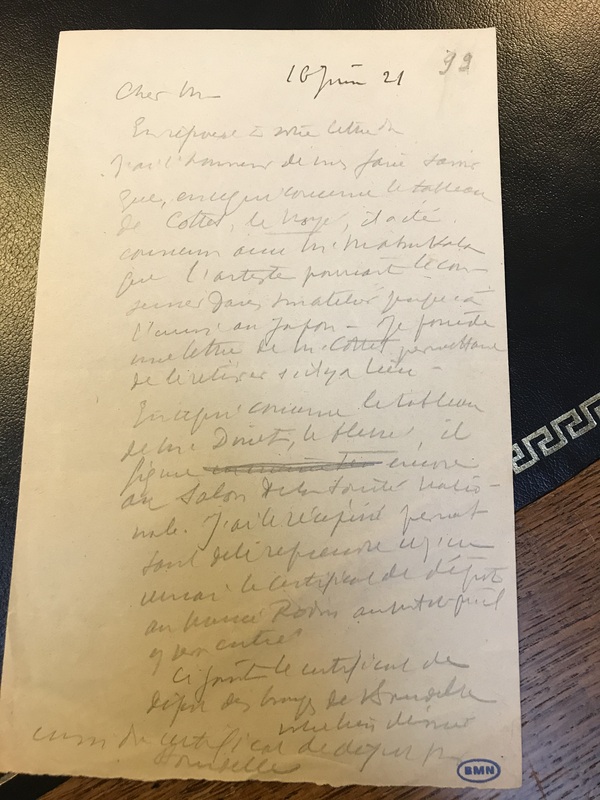 16 Juin 21
92
Cher M
En réponse à votre lettre du
j'ai l'honneur de vous faire savoir
que, en ce qui concerne le tableau
de Cottet, le Noyé, il a été
convenu avec M. Matsukata
que l'artiste pourrait le con-
server dans son atelier jusqu'à
l'envoi au Japon - Je possède
une lettre de M. Cottet permettant
de le retirer s'il y a lieu -
En ce qui concerne le tableau
de M. Dinet, le blessé, il
figure encore
au Salon de la Société Natio-
nale. J'ai le récépissé permet
tant de le reprendre et j'en
verrai le certificat de dépôt
au musée Rodin aussitôt qu'il
y sera entré
Ci joint le certificat de
dépôt des bronzes de Bourdelle
certificat de dépôt
Bourdelle
BMN